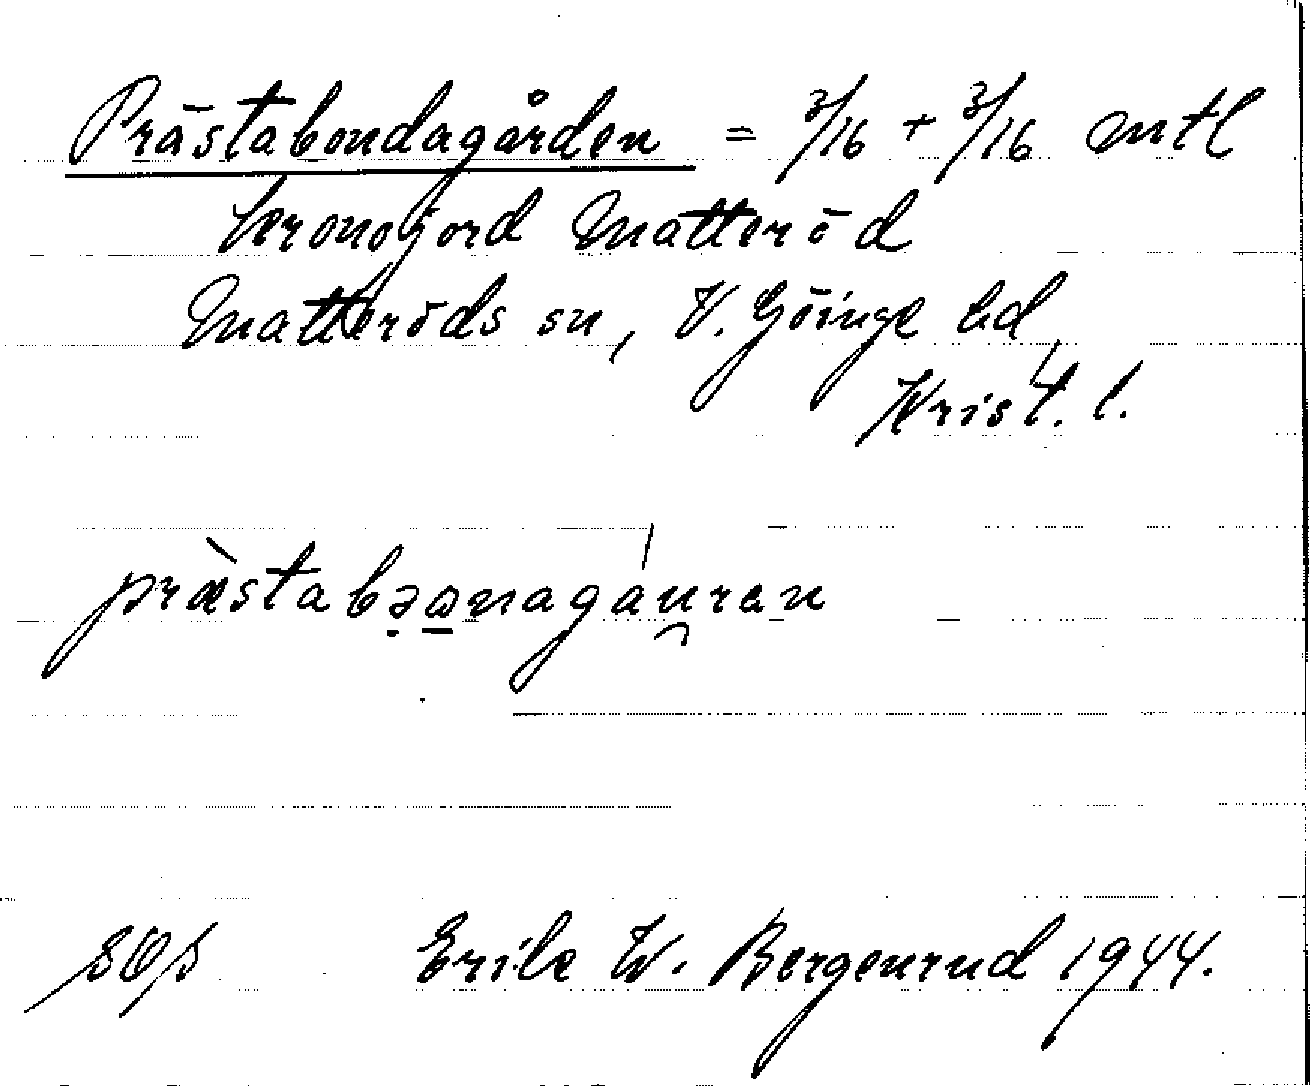 Prästabondagården = 3/16 + 3/16 mtl
kronojord Matteröd
Matteröds sn, V. Göinge hd,
Krist. l.
prästabənagáuran
Erik W. Bergenrud 1944.